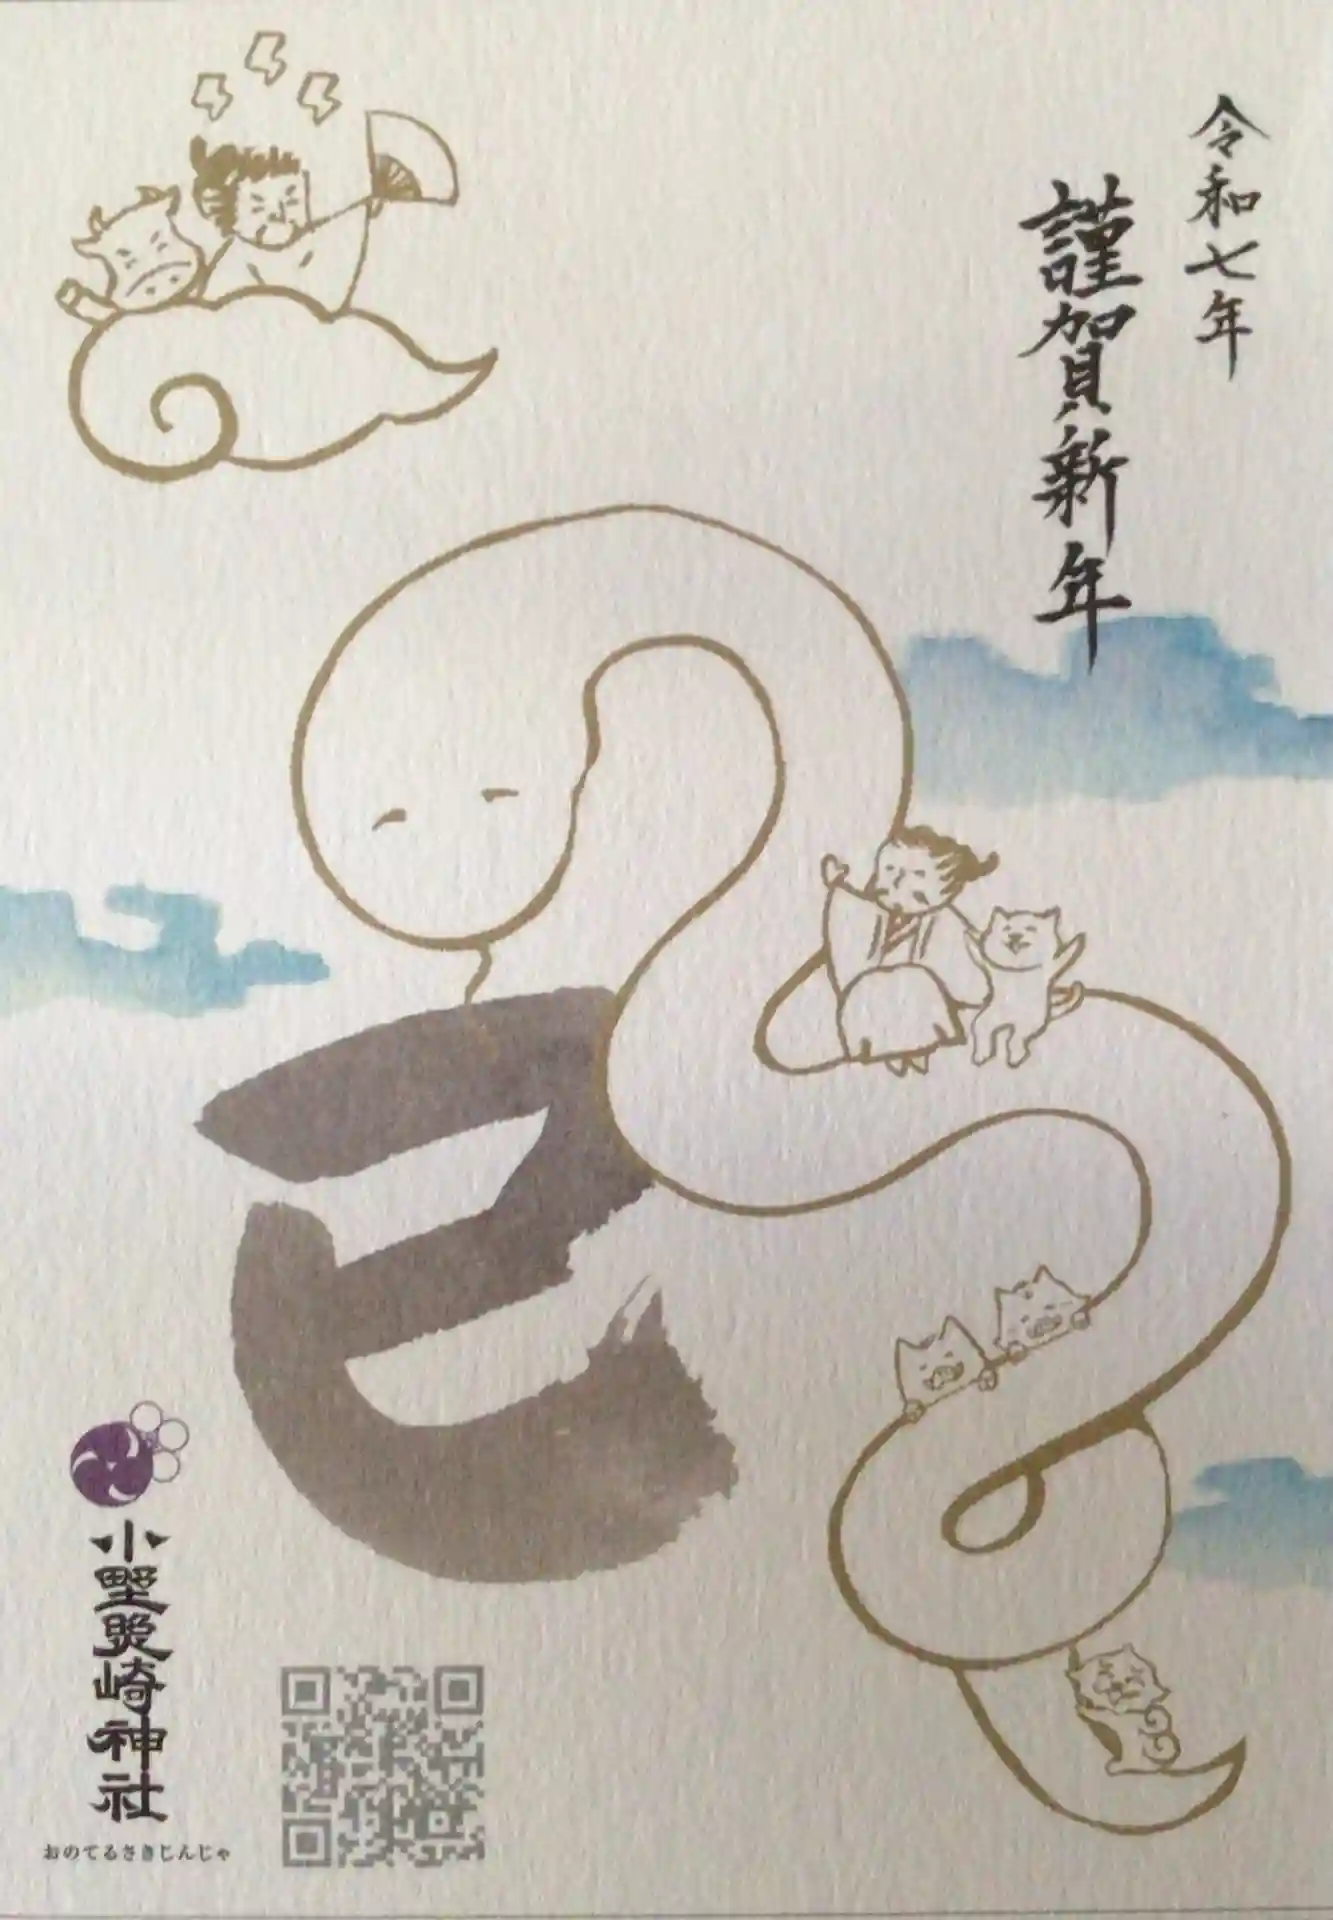 令和七年
謹賀新年
巳
小野照崎神社
おのてるさきじんじゃ